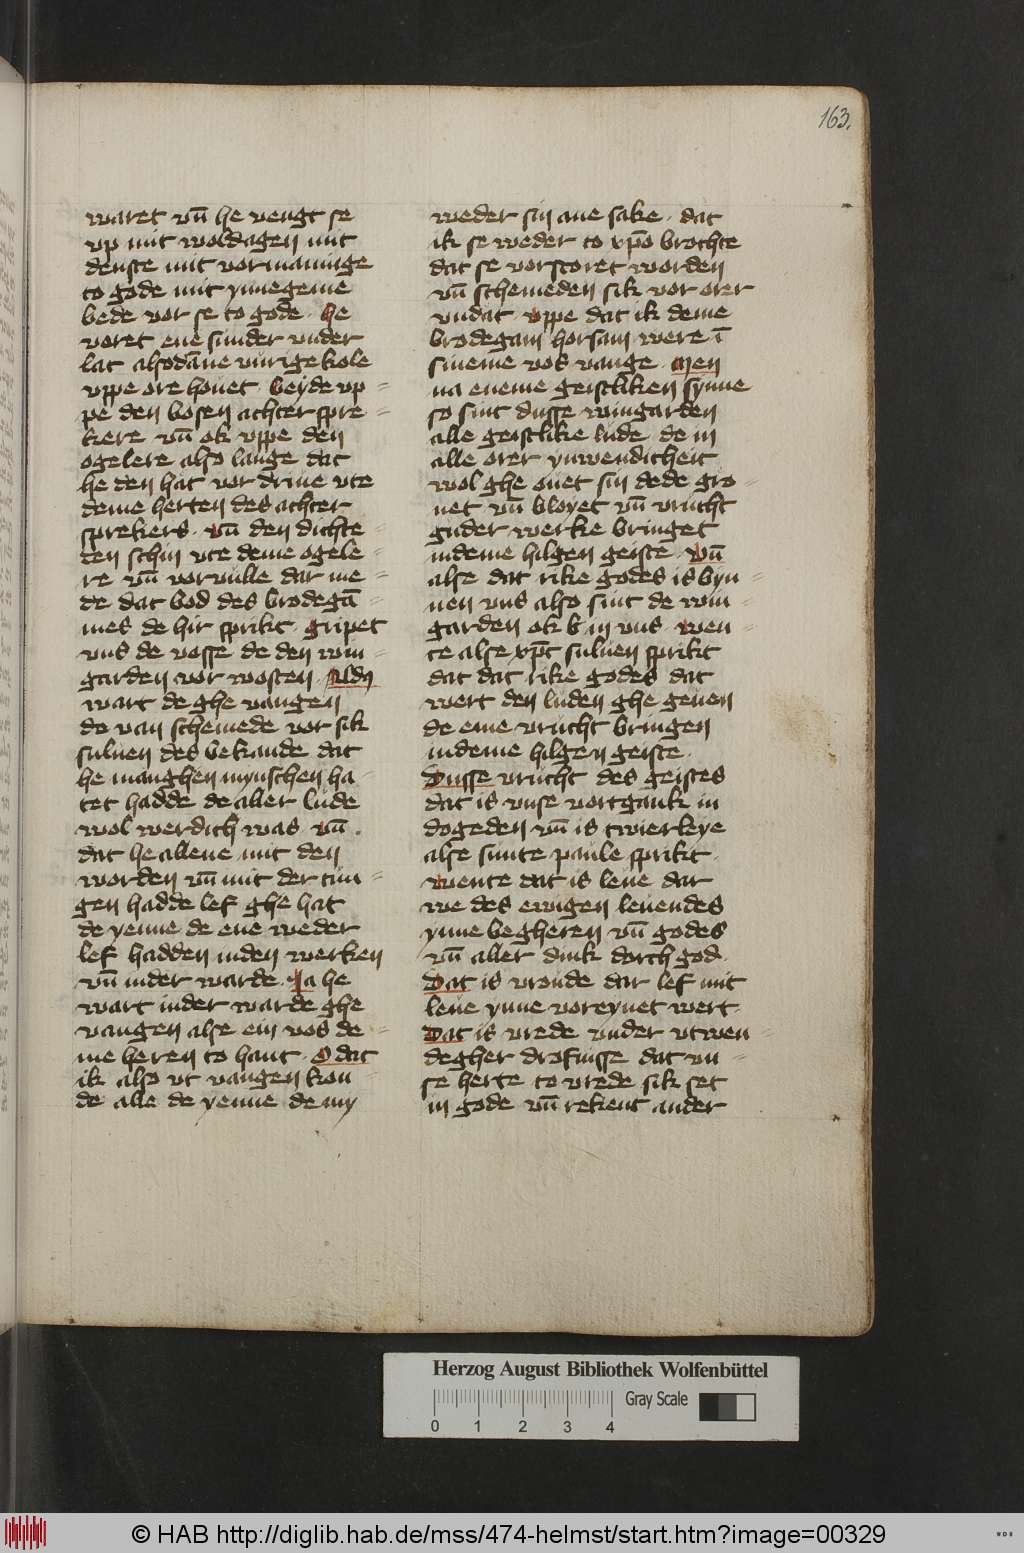 163.
waret vn̄ he vengt se
vp mit woldagen mit
denste mit vormaninge
to gode mit ynnegeme
bede vor se to gode · he
voret ene sunder vnder
lat alsodāne vurige kole
vppe ore houet beyde vp=
pe den bosen achter spre=
kere vn̄ ok vppe den
ogelere also lange dat
he den hat vor driue vte
deme herten des achter
sprekers · vn̄ den dichte=
ten schin vte deme ogele=
re vn̄ vorvulle dar me=
de dat bod des brodegā=
mes de hir sprikt · gripet
vns de vosse de den win=
garden vor wosten · Aldꝰ
wart de ghe vangen
do van schemede vor sik
suluen des bekande dat
he manghen mynschen ha-
tet hadde de aller lude
wol werdich was · vn̄
dat he allene mit den
worden vn̄ mit der tun=
gen hadde lef ghe hat
de yenne de ene weder
lef hadden inden werken
vn̄ inder warde · Ja he
wart inder warde ghe
vangen alse ein vos de=
me heren to hant · O dat
ik also vt vangen kon=
de alle de yenne de my
weder sin ane sake · dat
ik se weder to xp̄o brochte
dat se vorstoret worden
vn̄ schemeden sik vor orer
vndat vppe dat ik deme
brodegam horsam were ī
sineme vos vange · Men
na eneme geistliken synne
so sint dusse wingarden
alle geistlike lude de in
alle orer ynwendicheit
wol ghe ouet sin dede gro=
net vn̄ bloyet vn̄ vrucht
guder werke bringet
indeme hilgen geiste · Vn̄
alse dat rike godes is byn=
nen vns also sint de win=
garden ok b in vns · wen=
te alse xp̄c suluen sprikt
dat dat rike godes dat
wert den luden ghe geuen
de eine vrucht bringen
indeme hilgen geiste ·
Dusse vrucht des geistes
dat is vnse vortgank in
dogeden vn̄ is twierleye
alse sunte paule sprikt ·
wente dat is leue dar
we des ewigen leuendes
ynne begheren vn̄ godes
vn̄ aller dink dorch god ·
Dat is vroude dar lef mit
leue ynne voreynet wert ·
Dat is vrede vnder vtwen=
degher drofnisse dat vn=
se herte to vrede sik set
in gode vn̄ rekent ander
Herzog August Bibliothek Wolfenbüttel
0 1 2 3 4 Gray Scale
© HAB http://diglib.hab.de/mss/474-helmst/start.htm?image=00329